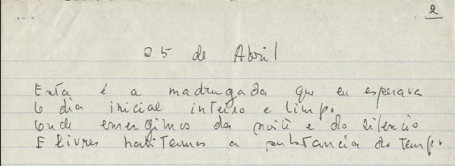 ... 2
25 de Abril
Esta é a madrugada que eu esperava
O dia inicial inteiro e limpo
Onde emergimos da noite e do silêncio
E livres habitamos a substancia do tempo